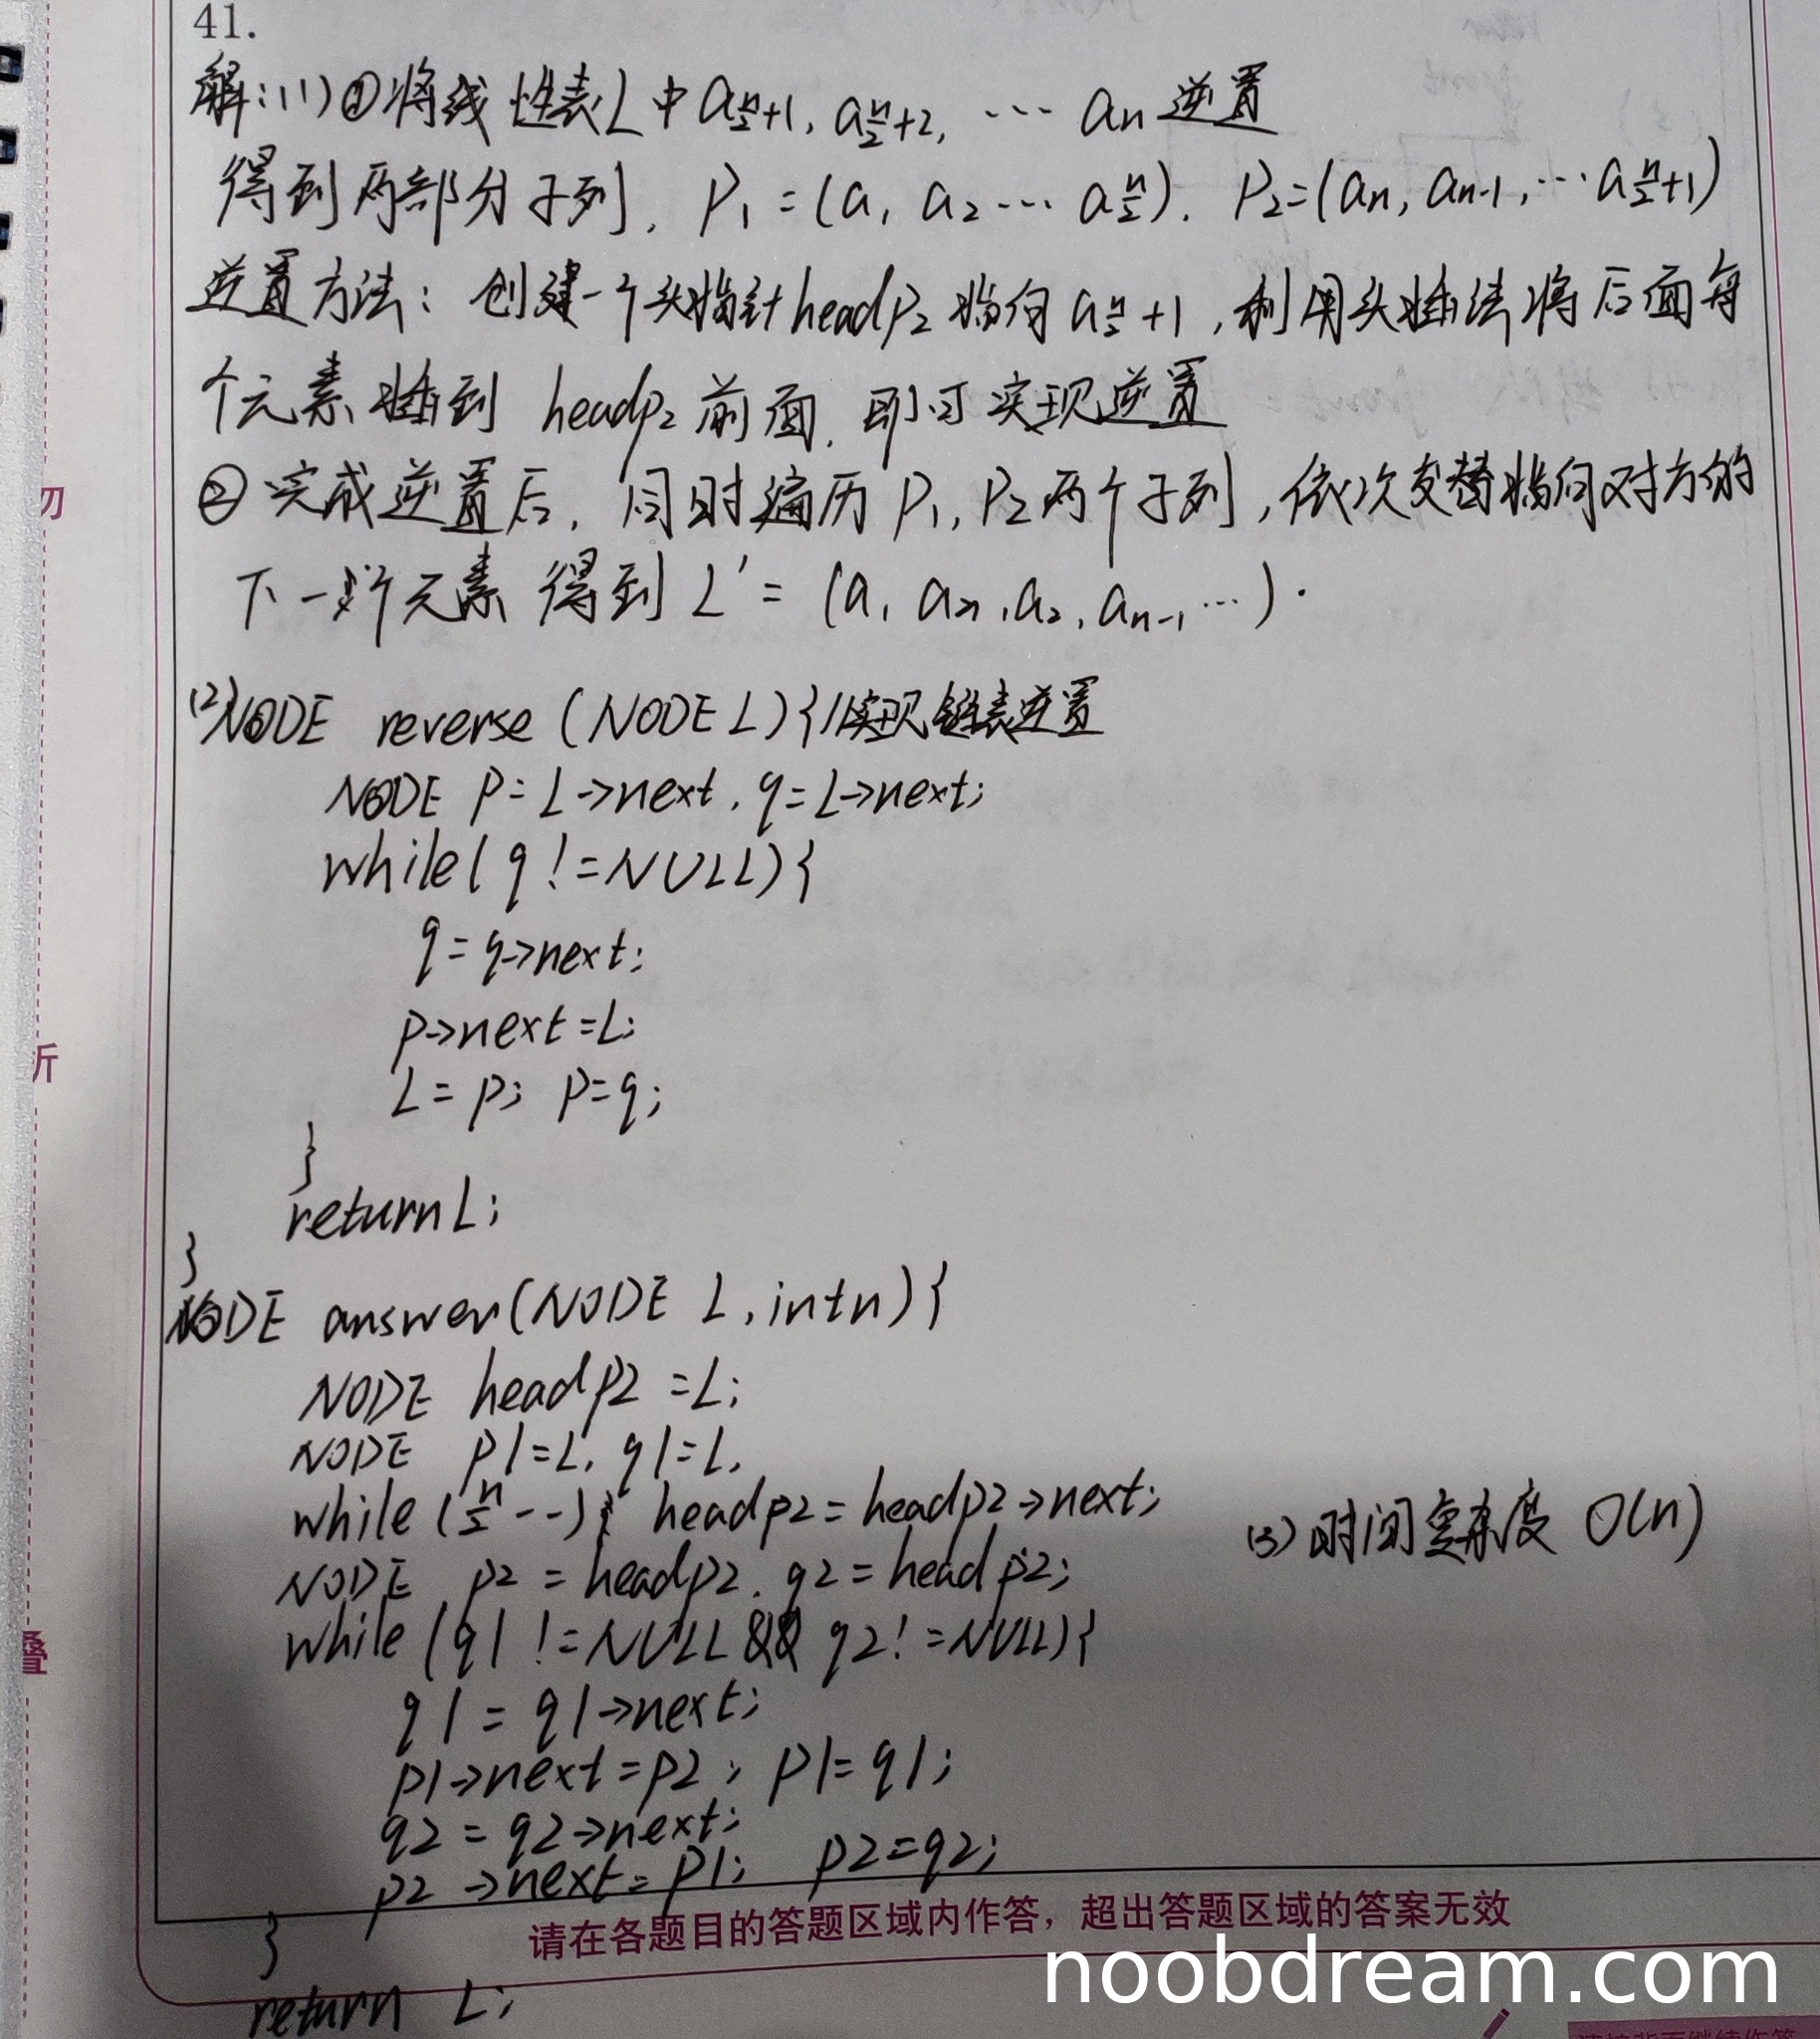 41.
解:(1)①将线性表L中a n/2+1, a n/2+2, ··· an 逆置
得到两部分子列, P₁=(a₁ a₂ ··· a n/2). P₂=(an, an-1, ··· a n/2+1)
逆置方法: 创建一个头指针headp₂指向a n/2+1,利用头插法将后面每
个元素插到 headp₂前面,即可实现逆置
②完成逆置后,同时遍历P₁,P₂两个子列,依次交替指向对方的
下一个元素得到L'=(a₁ an,a₂,an-1,···).
(2)NODE reverse(NODE L){//实现链表逆置
NODE p=L->next,q=L->next;
while(q!=NULL){
q=q->next;
p->next=L;
L=p; p=q;
}
return L;
}
NODE answer(NODE L,int n){
NODE headp2=L;
NODE p1=L,q1=L,
while(n/2--){ headp2=headp2->next;
(3)时间复杂度 O(n)
NODE p2=headp2,q2=headp2;
while(q1!=NULL&&q2!=NULL){
q1=q1->next;
p1->next=p2; p1=q1;
q2=q2->next;
p2->next=p1; p2=q2;
}
请在各题目的答题区域内作答,超出答题区域的答案无效
return L;
noobdream.com
切
折
叠